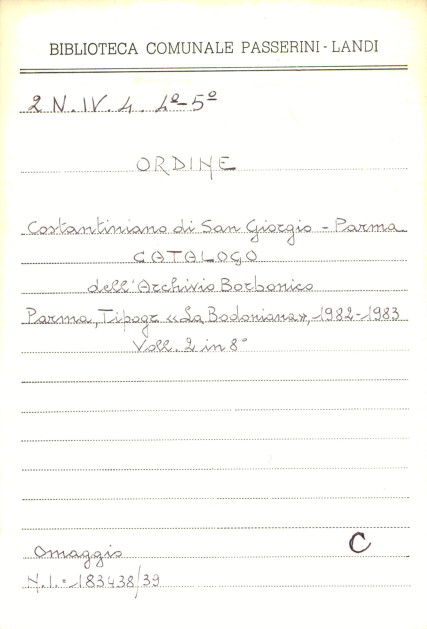 BIBLIOTECA COMUNALE PASSERINI-LANDI
2 N.IV.4. 4º-5º
ORDINE
Costantiniano di San Giorgio - Parma
CATALOGO
dell'Archivio Borbonico
Parma, Tipogr «La Bodoniana», 1982-1983
Voll. 2 in 8°
Omaggio C
N.I. 183438/39